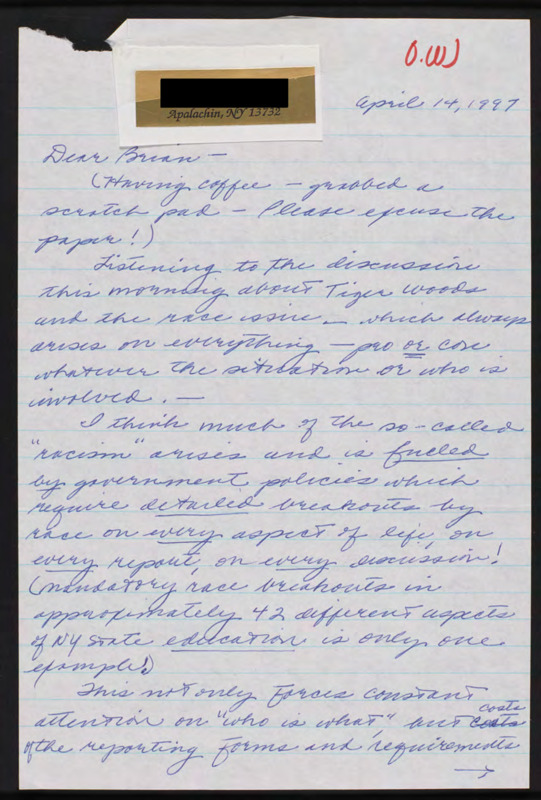 O.W)
Apalachin, NY 13732
April 14, 1997
Dear Brian —
(Having coffee — grabbed a
scratch pad — Please excuse the
paper!)
Listening to the discussion
this morning about Tiger Woods
and the race issue — which always
arises on everything — pro or con
whatever the situation or who is
involved. —
I think much of the so-called
"racism" arises and is fueled
by government policies which
require detailed breakouts by
race on every aspect of life, on
every report, on every discussion!
(Mandatory race breakouts in
approximately 42 different aspects
of NY State education is only one
example!)
This not only forces constant
attention on "who is what", but costs costs
of the reporting forms and requirements
→